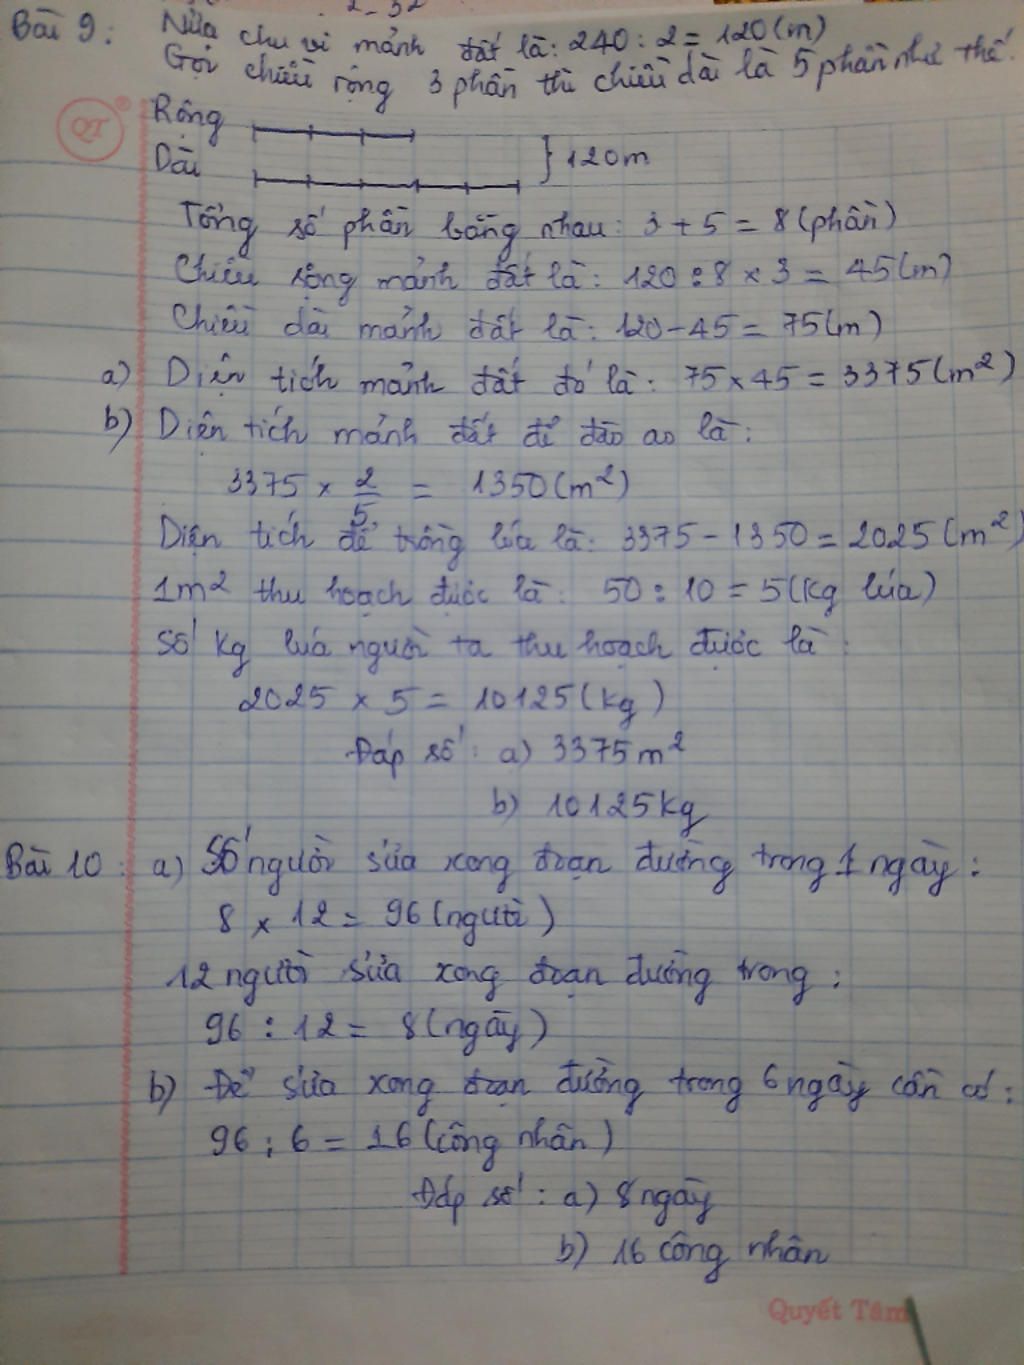 Bài 9: Nửa chu vi mảnh đất là: 240 : 2 = 120 (m)
Gọi chiều rộng 3 phần thì chiều dài là 5 phần như thế.
QT
Rộng
Dài
} 120m
Tổng số phần bằng nhau: 3 + 5 = 8 (phần)
Chiều rộng mảnh đất là: 120 : 8 × 3 = 45 (m)
Chiều dài mảnh đất là: 120 - 45 = 75 (m)
a) Diện tích mảnh đất đó là: 75 × 45 = 3375 (m²)
b) Diện tích mảnh đất để đào ao là:
3375 × 2/5 = 1350 (m²)
Diện tích để trồng lúa là: 3375 - 1350 = 2025 (m²)
1m² thu hoạch được là: 50 : 10 = 5 (kg lúa)
Số kg lúa người ta thu hoạch được là:
2025 × 5 = 10125 (kg)
Đáp số: a) 3375 m²
b) 10125 kg
Bài 10: a) Số người sửa xong đoạn đường trong 1 ngày:
8 × 12 = 96 (người)
12 người sửa xong đoạn đường trong:
96 : 12 = 8 (ngày)
b) Để sửa xong đoạn đường trong 6 ngày cần có:
96 : 6 = 16 (công nhân)
Đáp số: a) 8 ngày
b) 16 công nhân
Quyết Tâm